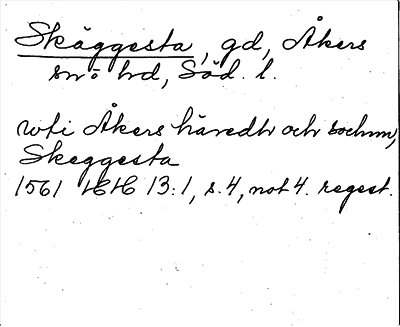 Skäggesta, gd, Åkers
sn ö hd, Söd. l.
wti Åkers häredh och sochnn,
Skeggesta
1561 HH 13:1, s. 4, not 4. regest.